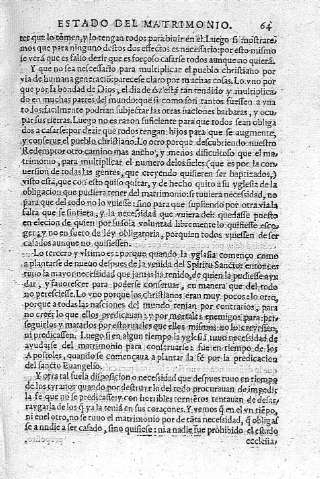 ESTADO DEL MATRIMONIO. 64
ter que lo tomen, y lo tengan todos para biuir en el. Luego si mostrare
mos que para ninguno destos dos effectos es necessario: por esto mismo
se verà que es falso dezir que es forçoso casarse todos aunque no quierã.
Y que no sea necessario para multiplicar el pueblo christiano por
via de humana generaciõ: parece claro por muchas cosas. Lo vno por
que por la bondad de Dios, el dia de oy està tan tendido y multiplica
do en muchas partes del mundo: que si como son tantos fuessen a vna
todos facilmente podrian subjectar las otras naciones barbaras, y ocu
par sus tierras. Luego no es razon sufficiente para que todos sean obliga
dos a casarse: por dezir que todos tengan hijos para que se augmente,
y conserue el pueblo christiano. Lo otro porque descubriendo nuestro
Redemptor otro camino mas ancho, y menos dificultoso que el ma
trimonio, para multiplicar el numero de los fieles (que es por la con
uersion de todas las gentes, que creyendo quisieren ser baptizados)
visto està, que con esto quiso quitar, y de hecho quito a su yglesia de la
obligacion que pudiera tener del matrimonio: si tuuiera necessidad, no
para que del todo no lo vuiesse: sino para que supliendo por otra via la
falta que se sintiera, y la necessidad que vuiera del: quedasse puesto
en election de quien por su sola voluntad libremente lo quisiesse esco-
ger: y no en fuero de ley obligatoria, porque no todos vuiessen de ser
casados aunque no quisiessen.
Lo tercero y vltimo es: porque quando la yglesia començo como
a plantarse de nueuo despues de la venida del Spiritu Sancto: entonces
tuuo la mayor necessidad que jamas ha tenido, de quien la pudiesse ayu
dar, y fauorescer para poderse conseruar, en manera que del todo
no peresciesse. Lo vno porque los Christianos eran muy pocos: lo otro,
porque a todas las naciones del mundo tenian por contrarios, para
no creer lo que ellos predicauan: y por mortales enemigos para per-
seguirlos y matarlos por estoruarles que ellos mismos no lo creyessen,
ni predicassen. Luego si en algun tiempo la yglesia tuuo necessidad de
ayudarse del matrimonio para conseruarse: fue en tiempo de los
Apostoles, quando se començaua a plantar la fè por la predicacion
del sancto Euangelio.
Y otra tal fue la disposicion o necessidad que despues tuuo en tiempo
de los tyranos: quando por destruyrlo del todo procurauan de impedir
la fe que no se predicasse: y con horribles tormentos tentauan de desar
raygarla de los q̃ ya la teniã en sus coraçones. Y vemos q̃ en el vn tiẽpo,
ni en el otro, no se tuuo el matrimonio por de tãta necessidad, q̃ obligas
se a nadie a ser casado, sino quisiesse: ni a nadie fue prohibido el estado
ecclesia-